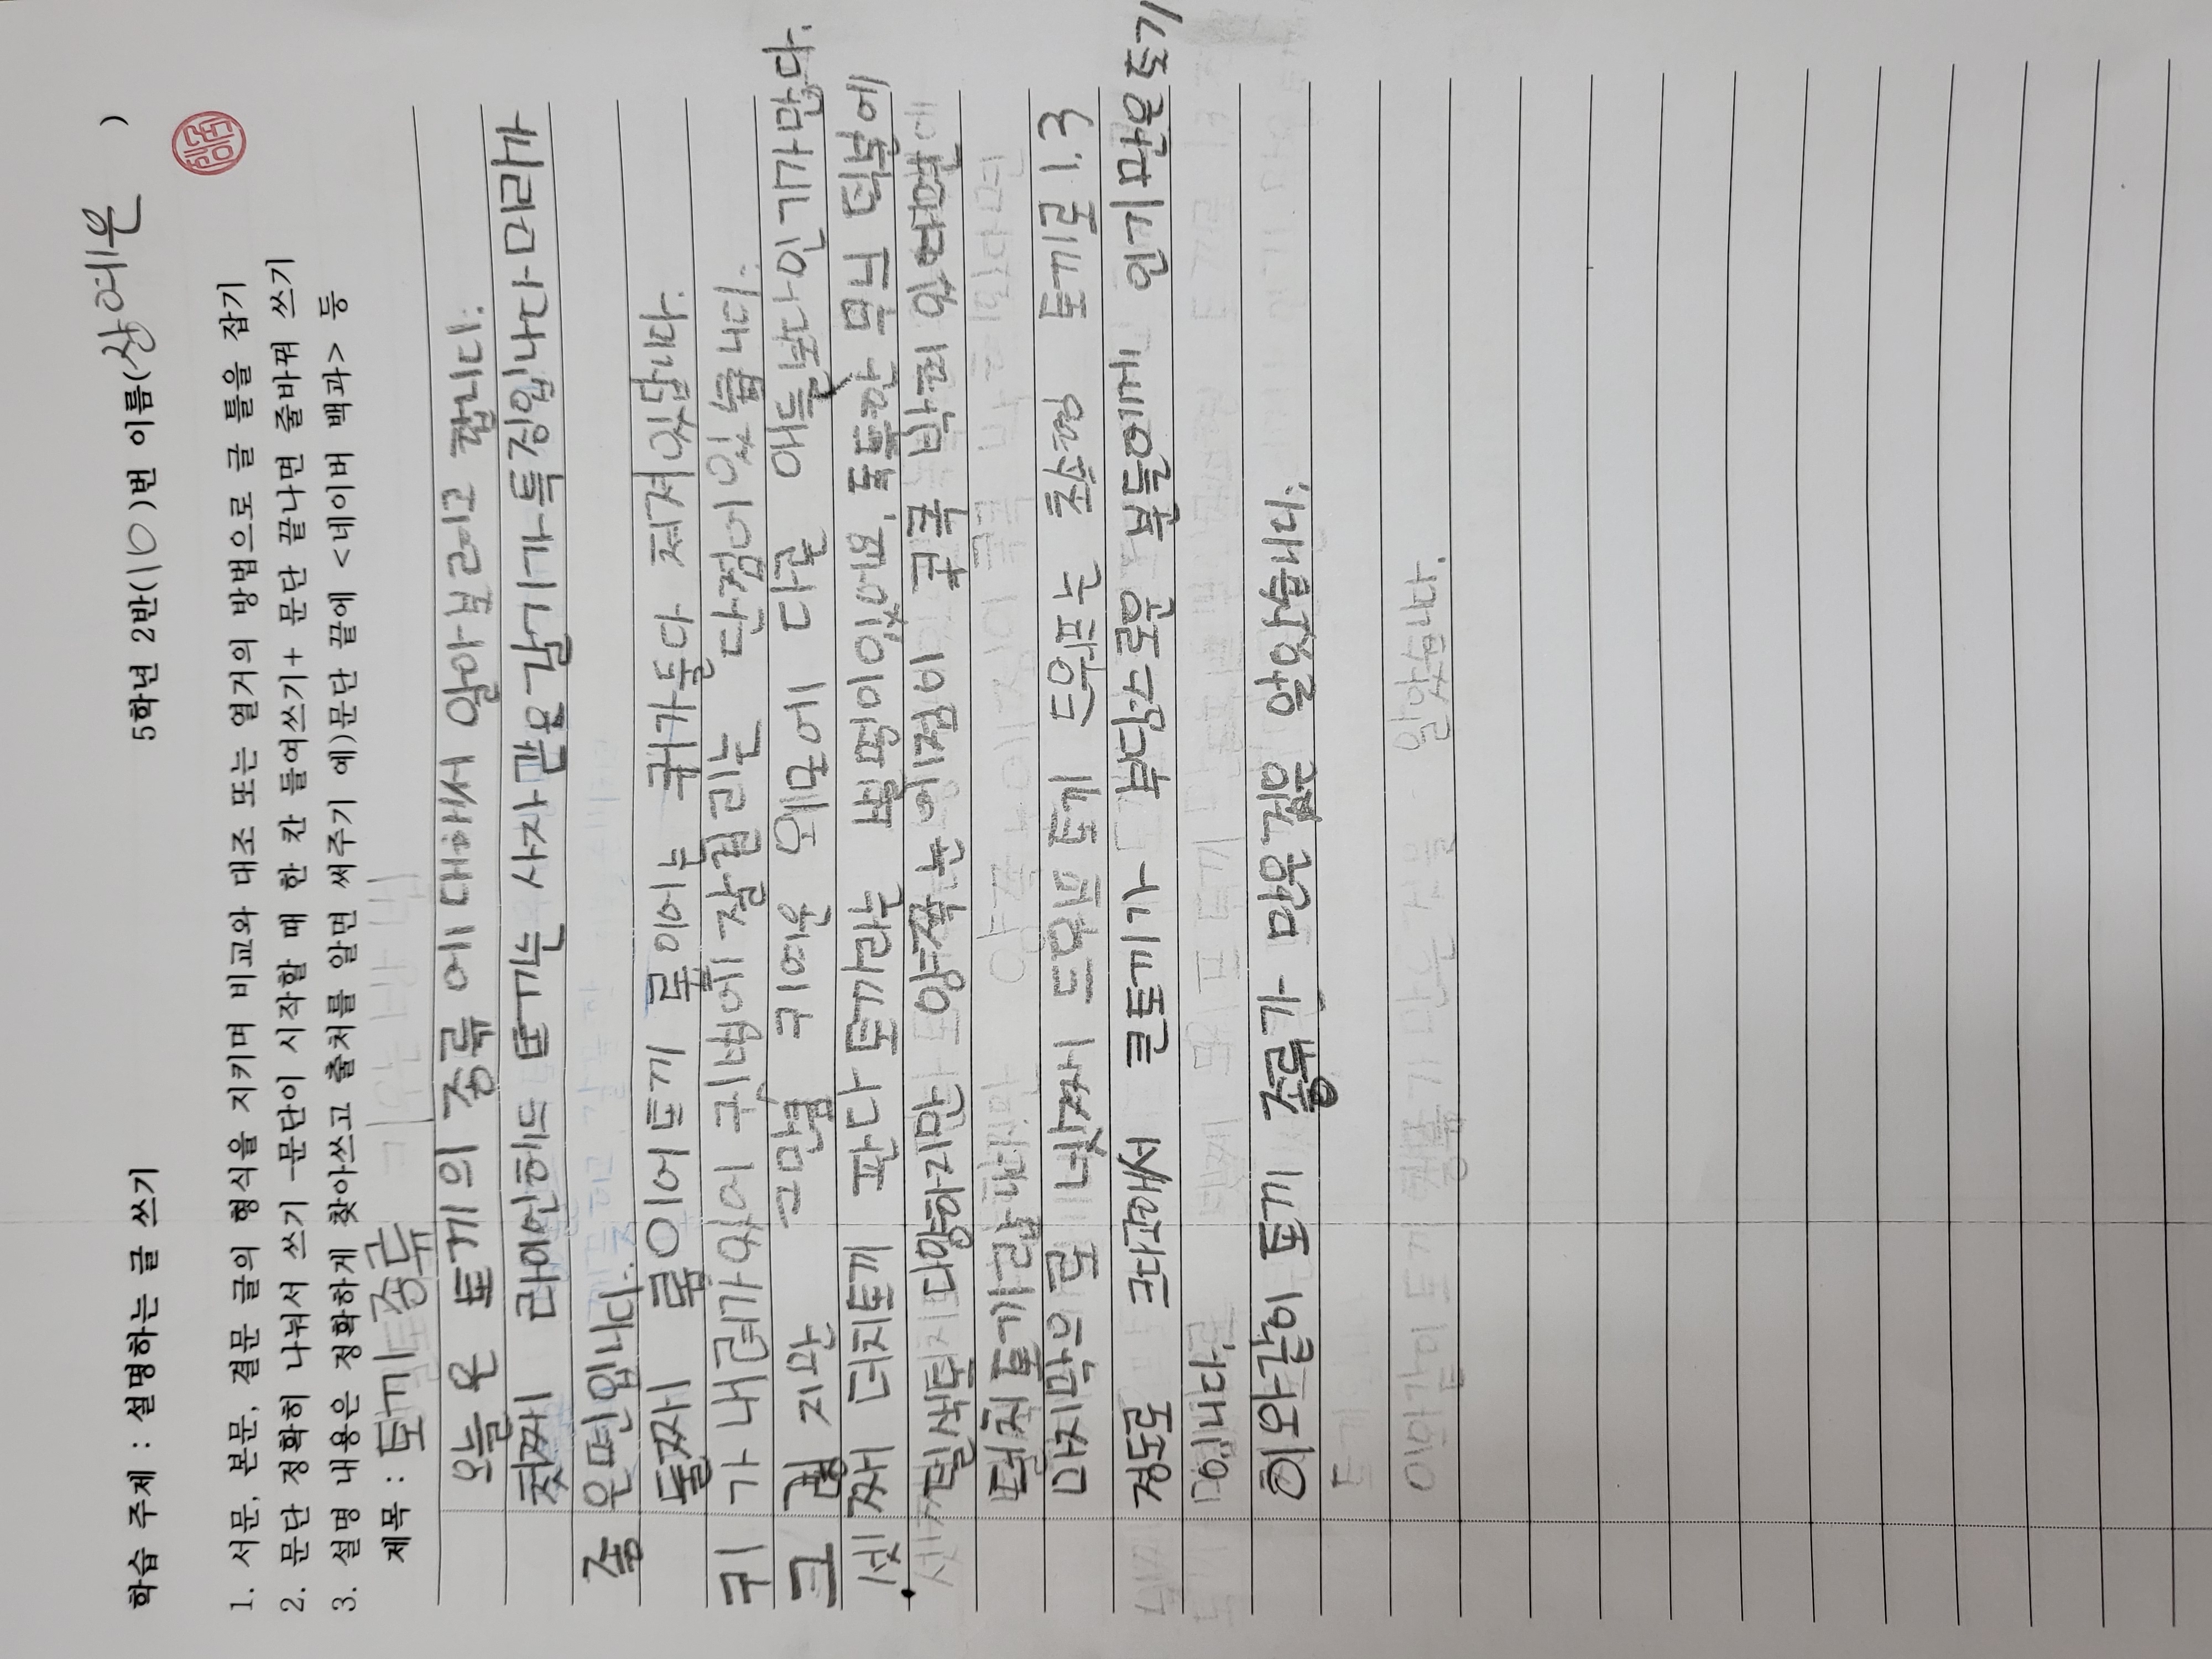 학습 주제 : 설명하는 글 쓰기 5학년 2반(10)번 이름(장예은)
1. 서문, 본문, 결문 글의 형식을 지키며 비교와 대조 또는 열거의 방법으로 글 틀을 잡기
2. 문단 정확히 나눠서 쓰기 -문단이 시작할 때 한 칸 들여쓰기+ 문단 끝나면 줄바꿔 쓰기
3. 설명 내용은 정확하게 찾아쓰고 출처를 알면 써주기 예)문단 끝에 <네이버 백과> 등
제목 : 토끼 종류
오늘은 토끼의 종류에 대해서 알아보려고 합니다.
첫째 라이언헤드 토끼는 사자같은 갈기가 특징입나다 머리가
좋은편입니다.
둘째 롭이어토끼 롭이어는 귀가둘다 쳐져있답니다.
귀가 내려가있어 귓병에 잘걸리는 단점이있습니다.
그렇지만 그만큼 귀여운 외모에 다른 애들보다인기가많다.
셋째 더치토끼 판다 토끼라는 별명이있어요. 독특한 무늬 덕분에
털색도 다양하지만 양쪽눈에점이 콕콕 박혀있다면
더치토끼랍니다.
마지막으로 넷째 드워프토끼 드워프는 초소형 토끼로 1.3
정도로 크다고해서 큰토끼가 부담스로운 분들에게 인기만은토기
입니다.
이와같이 토끼 종류가 만은 알았습니다.
이와같이 토끼 종류가 만는 것을 알았습니다.